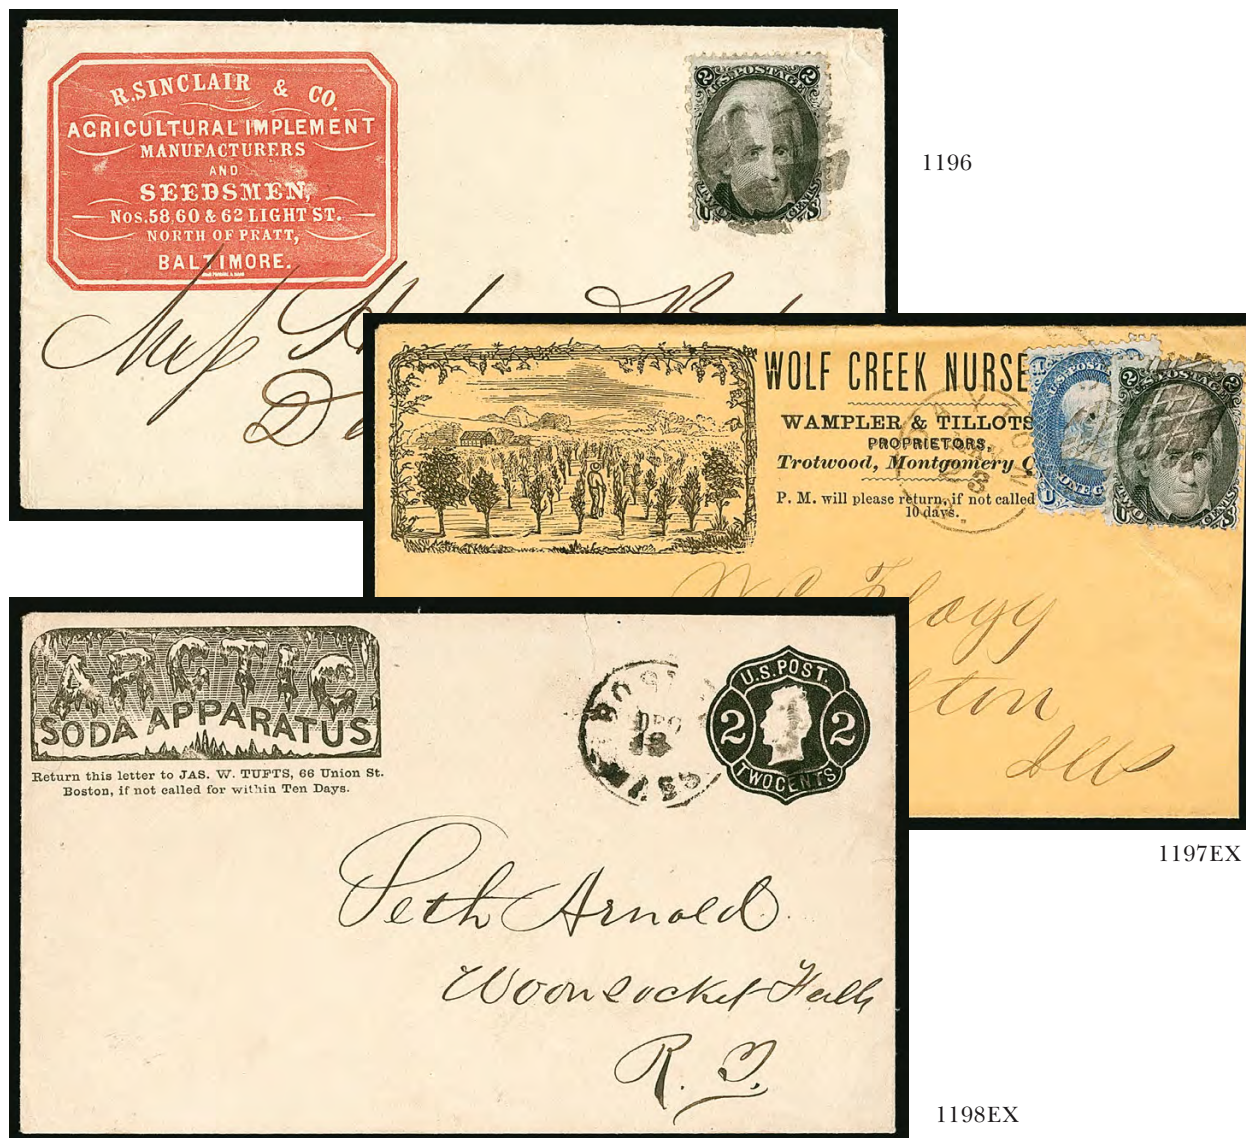 R. SINCLAIR & CO.
AGRICULTURAL IMPLEMENT
MANUFACTURERS
AND
SEEDSMEN,
Nos. 58, 60 & 62 LIGHT ST.
NORTH OF PRATT,
BALTIMORE.
2 U.S. POSTAGE 2
U S
1196
WOLF CREEK NURSE
WAMPLER & TILLOTS
PROPRIETORS,
Trotwood, Montgomery
P. M. will please return, if not called
10 days.
U.S. POST
ONE C
U
2 U.S. POSTAGE 2
U CENTS S
Flagg
lton
Ills
1197EX
ARCTIC
SODA APPARATUS
Return this letter to JAS. W. TUFTS, 66 Union St.
Boston, if not called for within Ten Days.
BOST
DEC
MASS
U.S. POST.
2 2
TWO CENTS
Seth Arnold
Woonsocket Falls
R. I.
1198EX